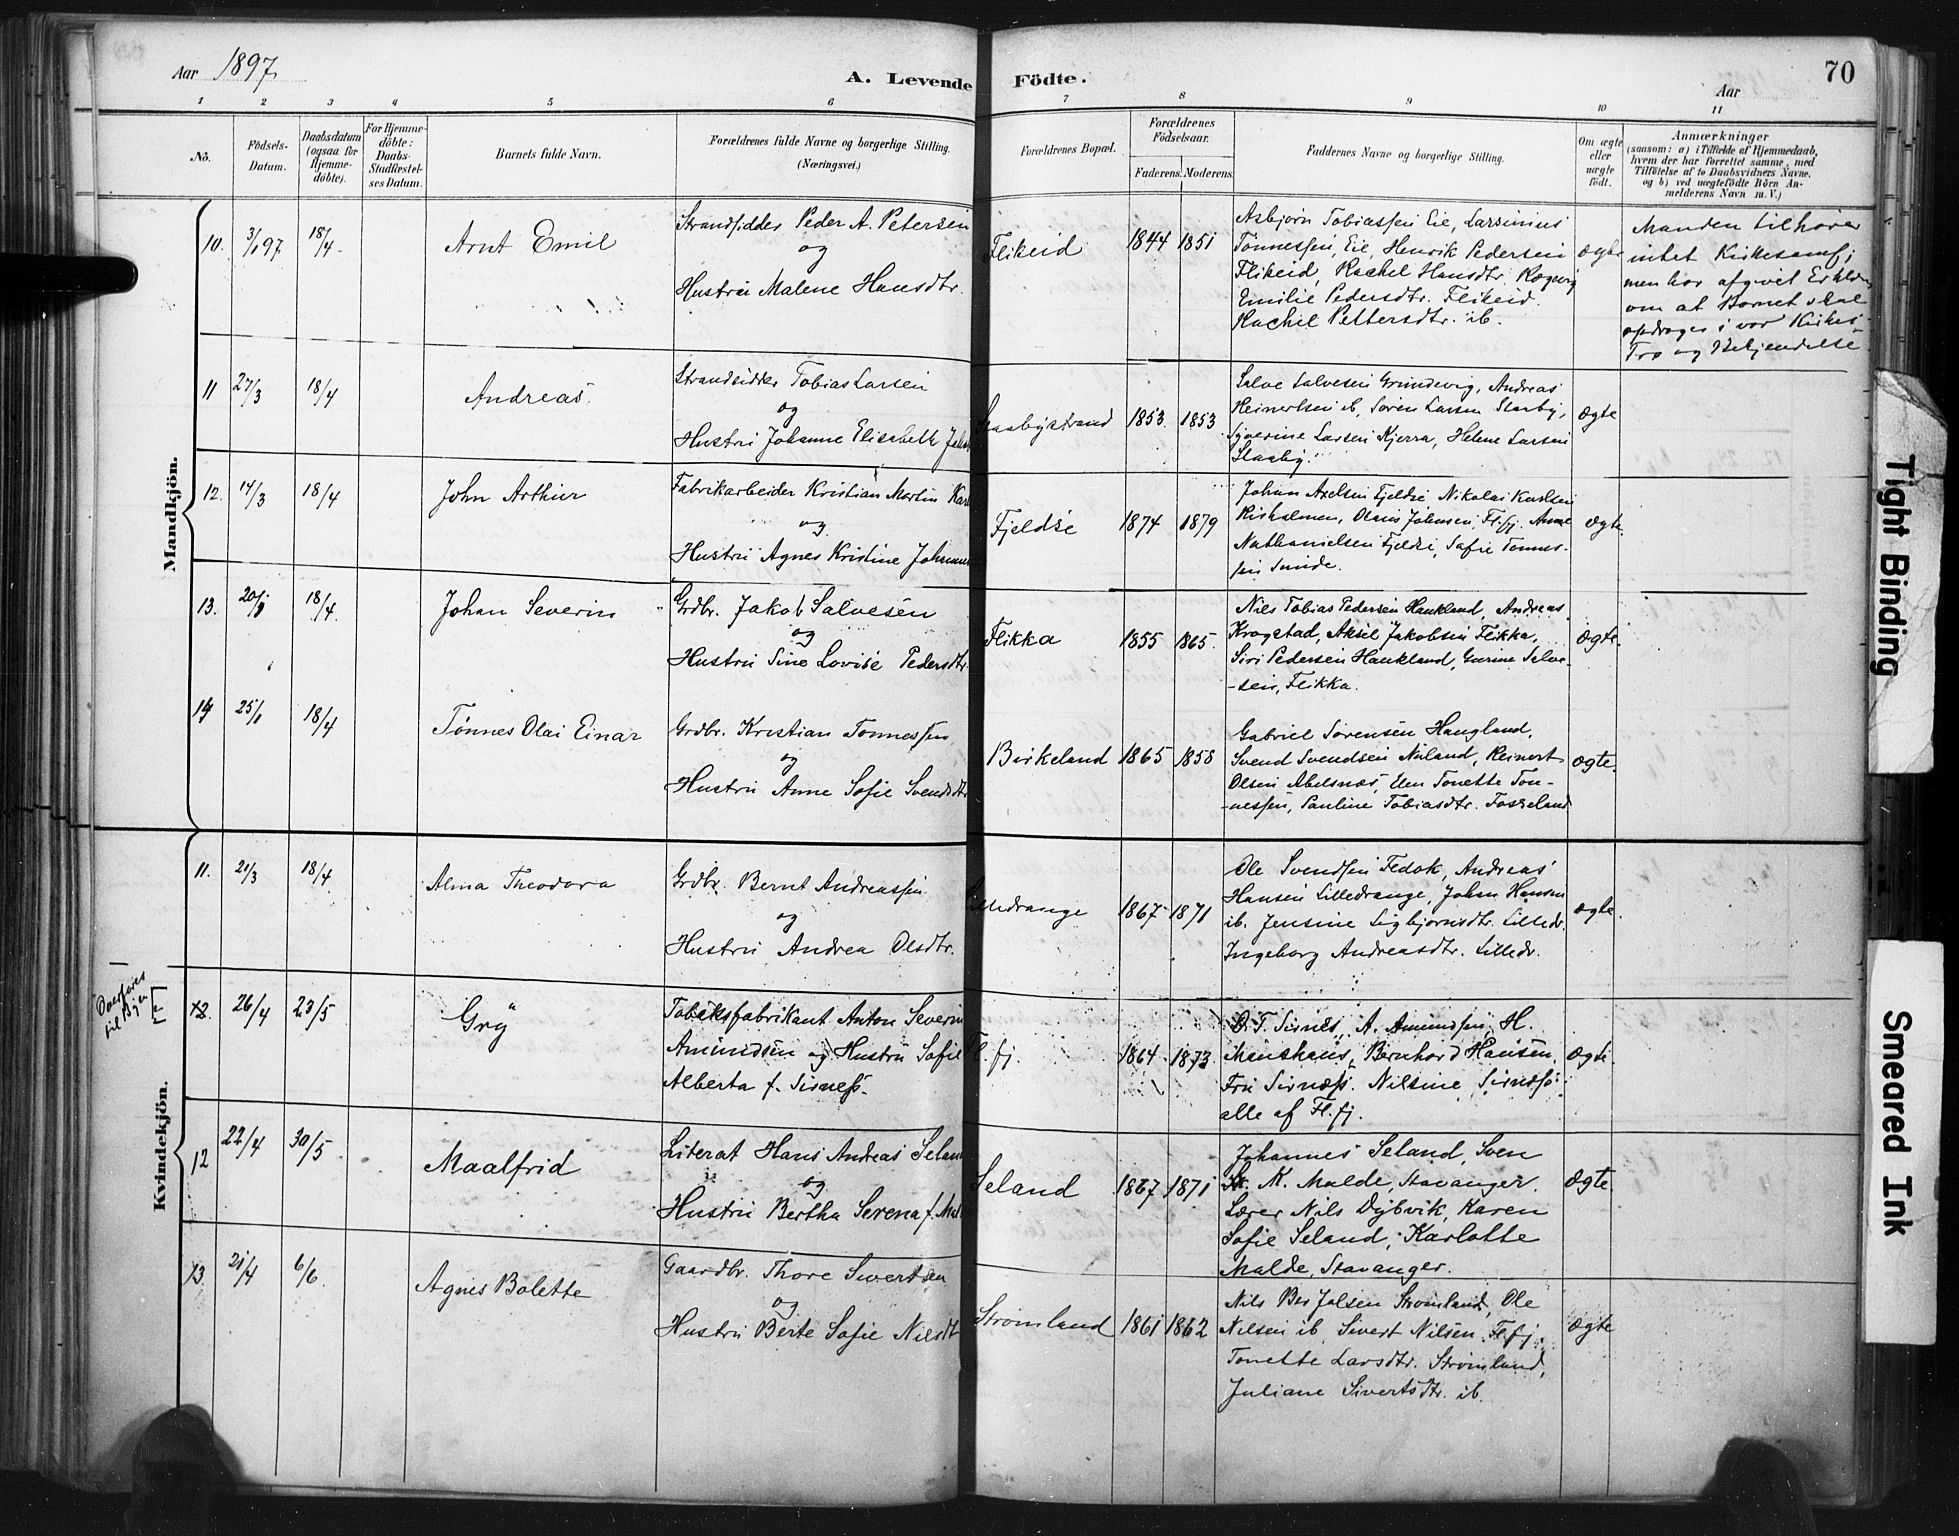 Aar 1897.
A. Levende Födte.
Aar
70
1 2 3 4 5 6 7 8 9 10 11
No.
Födsels-Datum.
Daabsdatum (ogsaa for Hjemme-döbte).
For Hjemme-döbte: Daabs-Stadfæstel-ses Datum.
Barnets fulde Navn.
Forældrenes fulde Navne og borgerlige Stilling.
(Næringsvei.)
Forældrenes Bopæl.
Forældrenes Födselsaar.
Faderens. Moderens.
Faddernes Navne og borgerlige Stilling.
Om ægte eller uægte födt.
Anmærkninger
(saasom: a) i Tilfælde af Hjemmedaab,
hvem der har forrettet samme, med
Tilföielse af to Daabsvidners Navne.
og b) ved uægtefödte Börn An-
melderens Navn m. V.)
Mandkjön.
10. 3/1 97 18/4 Arnt Emil
Strandsidder Peder A. Petersen
og
Hustru Malene Hansdtr.
Flikeid 1844 1851
Asbjørn Tobiassen Eie, Larsinius
Tönnessen, Eie, Henrik Pedersen
Flikeid, Rachel Hansdtr. Rægevig
Emilie Pedersdtr. Flikeid.
Rachel Pettersdtr. ib.
ægte
Manden tilhører
intet Kirkesamf;
men har afgivet Erklær
om at Barnet skal
opdrages i vor Kirkes
Tro og Bekjendelse.
11 27/3 18/4 Andreas.
Strandsidder Tobias Larsen
og
Hustru Johanne Elisabeth
Staabystrand 1853. 1853
Salve Salvesen Grundevig, Andreas
Reinertsen ib, Søren Larsen Staaby,
Syverine Larsen Kjerra, Helene Larsen
Staaby.
ægte
12. 14/3 18/4 John Arthur
Fabrikarbeider Kristian Martin Karl
og
Hustru Agnes Kristine Johanne
Fjeldse 1874 1879
Johan Axelsen Fjeldse Nikolai Karlsen
Risholmen, Olaus Johnsen, Fl.fj. Anne
Nathanielsen Fjeldse, Sofie Tønnes-
sen Sunde.
ægte.
13. 18/4 Johan Severin
Grdbr. Jakob Salvesen
og
Hustru Sine Lovise Pedersdtr.
Flikka 1855 1865.
Nils Tobias Pedersen Haukland, Andreas
Krogstad, Aksel Jakobsen Flikka,
Siri Pedersen Haukland, Gurine Salve-
-sen, Flikka.
ægte.
14 25/1 18/4 Tønnes Olai Einar
Grdbr. Kristian Tønnessen
og
Hustru Anne Sofie Svendsdtr
Birkeland 1865 1858
Gabriel Sørensen Haugland,
Svend Svendsen Nuland, Reinert
Olsen Abelsnæs, Elen Tonette Tøn-
-nessen, Pauline Tobiasdtr. Fosseland
ægte.
Kvindekjön.
11. 21/3 18/4 Alma Theodora
Grdbr. Bernt Andreassen
og
Hustru Andrea Olsdtr.
Lilledrange 1867 1871
Ole Svendsen Fedok, Andreas
Hansen Lilledrange, Johan Hansen
ib. Jensine Sigbjørnsdtr. Lilledr.
Ingeborg Andreasdtr. Lilledr.
ægte.
Overføres
til Byen
12. 26/4 23/5 Gry
Tobaksfabrikant Anton Severin
Amundsen og Hustru Sofie
Alberta f. Sirness.
Fl. fj. 1864 1873
O. T. Sirnes, A. Amundsen, H.
Monshaus, Bernhard Hansen,
Fru Sirness. Nilsine Sirness
alle af Fl. fj.
ægte.
12 22/4 30/5 Maalfrid
Literat Hans Andreas Seland
og
Hustru Bertha Serena f. Mal
Seland 1867 1871
Johannes Seland, Sven
K. Malde, Stavanger.
Lærer Nils Dybvik, Karen
Sofie Seland, Karlotte
Malde, Stavanger.
ægte.
13. 21/4 6/6. Agnes Bolette
Gaardbr. Thore Sivertsen
og
Hustru Berte Sofie Nilsdt
Strømland 1861 1862
Nils Strømland, Ole
Nilsen ib, Sivert Nilsen Fl.fj.
Tonette Larsdtr. Strømland,
Juliane Sivertsdtr. ib.
ægte
Tight Binding
Smeared Ink